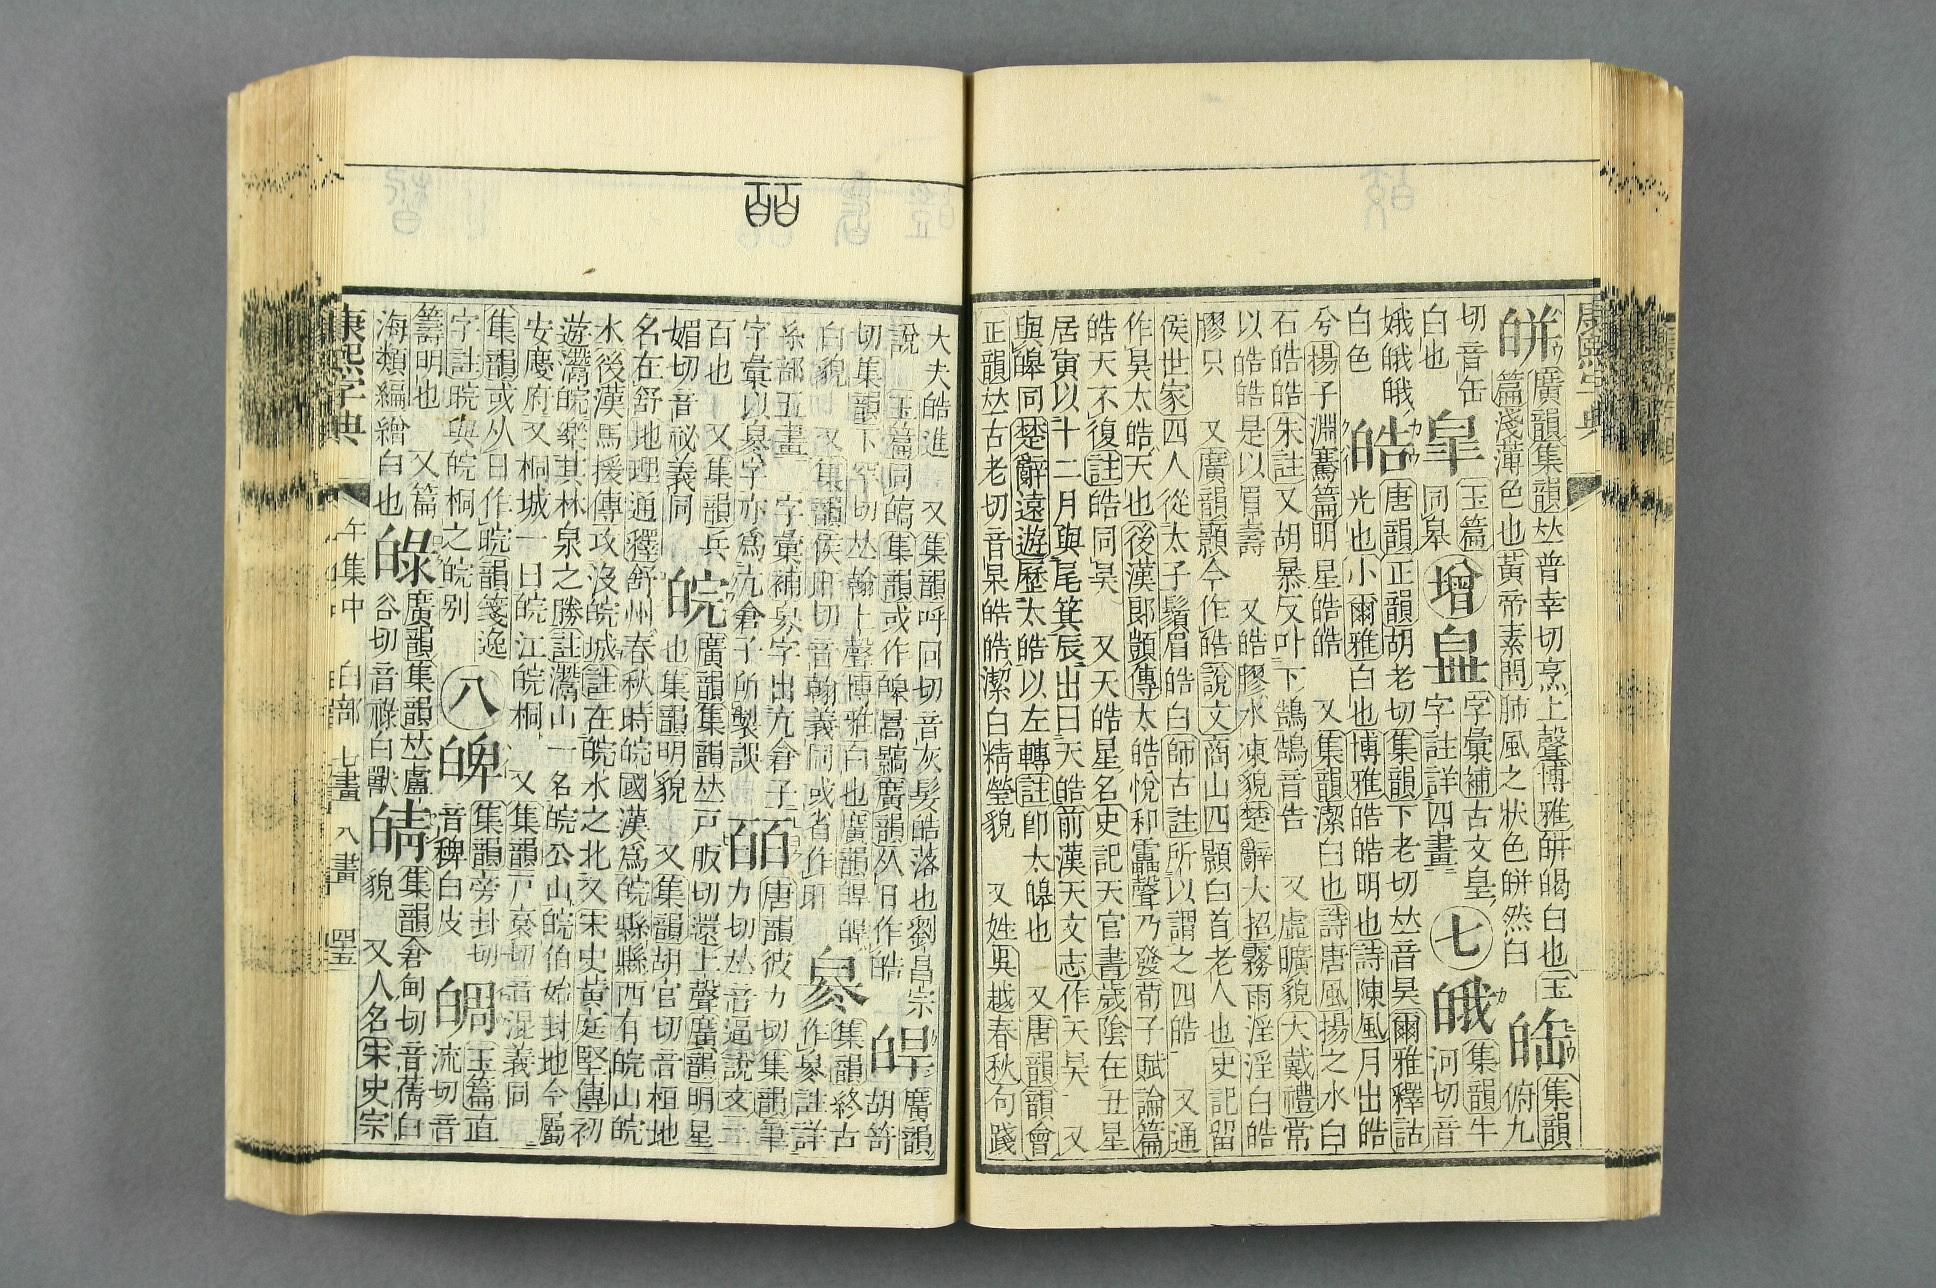 皏 廣韻集韻𠀤普幸切烹上聲博雅皏皜白也玉
篇淺薄色也黃帝素問肺風之狀色皏然白
集韻
俯九
切音缶
白也
皐 玉篇
同皋
增
𤽦 字彙補古文皇
字註詳四畫
七
皒 集韻牛
河切音
娥皒皒
白色
皓 唐韻正韻胡老切集韻下老切𠀤音昊爾雅釋詁
光也小爾雅白也博雅皓皓明也詩陳風月出皓
兮揚子淵騫篇明星皓皓 又集韻潔白也詩唐風揚之水白
石皓皓朱註又胡暴反叶下鵠鵠音告 又虛曠貌大戴禮常
以皓皓是以眉壽 又皓膠水凍貌楚辭大招霧雨淫淫白皓
膠只 又廣韻顥今作皓說文商山四顥白首老人也史記留
侯世家四人從太子鬚眉皓白師古註所以謂之四皓 又通
作昊太皓天也後漢郞顗傳太皓悅和靁聲乃發荀子賦論篇
皓天不復註皓同昊 又天皓星名史記天官書歲陰在丑星
居寅以十二月與尾箕辰出曰天皓前漢天文志作天昊 又
與皞同楚辭遠遊歷太皓以左轉註卽太皞也 又唐韻韻會
正韻𠀤古老切音杲皓皓潔白精瑩貌 又姓吳越春秋句踐
康熙字典
大夫皓進 又集韻呼回切音灰髮皓落也劉昌宗
說 玉篇同皜集韻或作皞暠廣韻从日作晧
皔 廣韻
胡笴
切集韻下罕切𠀤翰上聲博雅白也廣韻皔皔
白貌 又集韻侯旰切音翰義同或省作皯
集韻終古
註詳
糸部五畫 字彙補字出亢倉子
字彙以字亦爲亢倉子所製誤
皕
皕 唐韻彼力切集韻筆
力切𠀤音逼說文二
百也 又集韻兵
媚切音祕義同
皖 廣韻集韻𠀤戸版切還上聲廣韻明星
也集韻明貌 又集韻胡官切音桓地
名在舒地理通釋舒州春秋時皖國漢爲皖縣縣西有皖山皖
水後漢馬援傳攻沒皖城註在皖水之北又宋史黃庭堅傳初
遊灊皖樂其林泉之勝註灊山一名皖公山皖伯始封地今屬
安慶府又桐城一曰皖江皖桐 又集韻戸袞切音混義同
集韻或从日作晥韻箋逸
字註晥與皖桐之皖別
八
𤾗 集韻旁卦切
音稗白皮
𤾊 玉篇直
流切音
籌明也 又篇
海類編繒白也
廣韻集韻𠀤盧
谷切音祿白獸
𤾂 集韻倉甸切音蒨白
貌 又人名宋史宗
康熙字典 午集中 白部 七畫 八畫